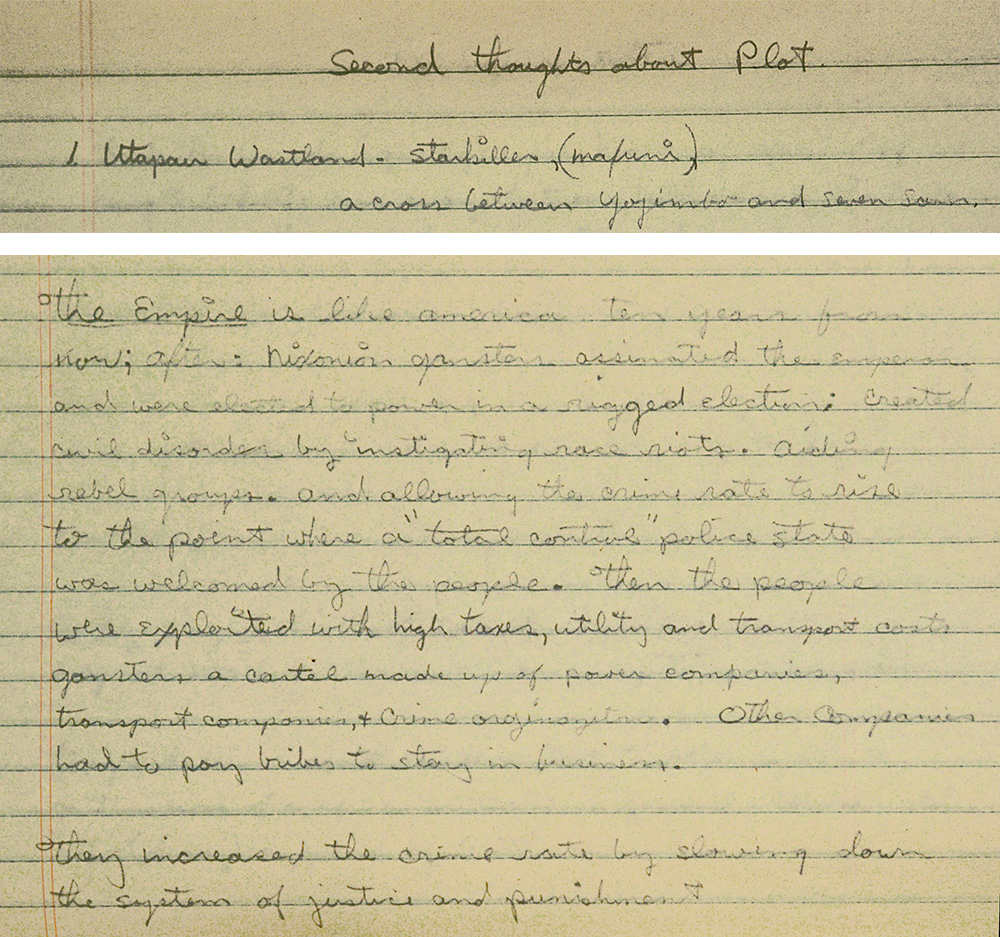 Second thoughts about Plot.
1. Utapau Wastland - Starkiller, (mafuni),
a cross between Yojimbo and seven sam.
the Empire is like america ten years from
now; after: Nixonian gansters assinated the emperor
and were elected to power in a rigged election; Created
civil disorder by instigating race riots. aiding
rebel groups. and allowing the crime rate to rise
to the point where a "total control" police state
was welcomed by the people. Then the people
were exploited with high taxes, utility and transport costs
gansters a cartel made up of power companies,
transport companies, & Crime Other Companies
had to pay bribes to stay in business.
they increased the crime rate by slowing down
the system of justice and punishment